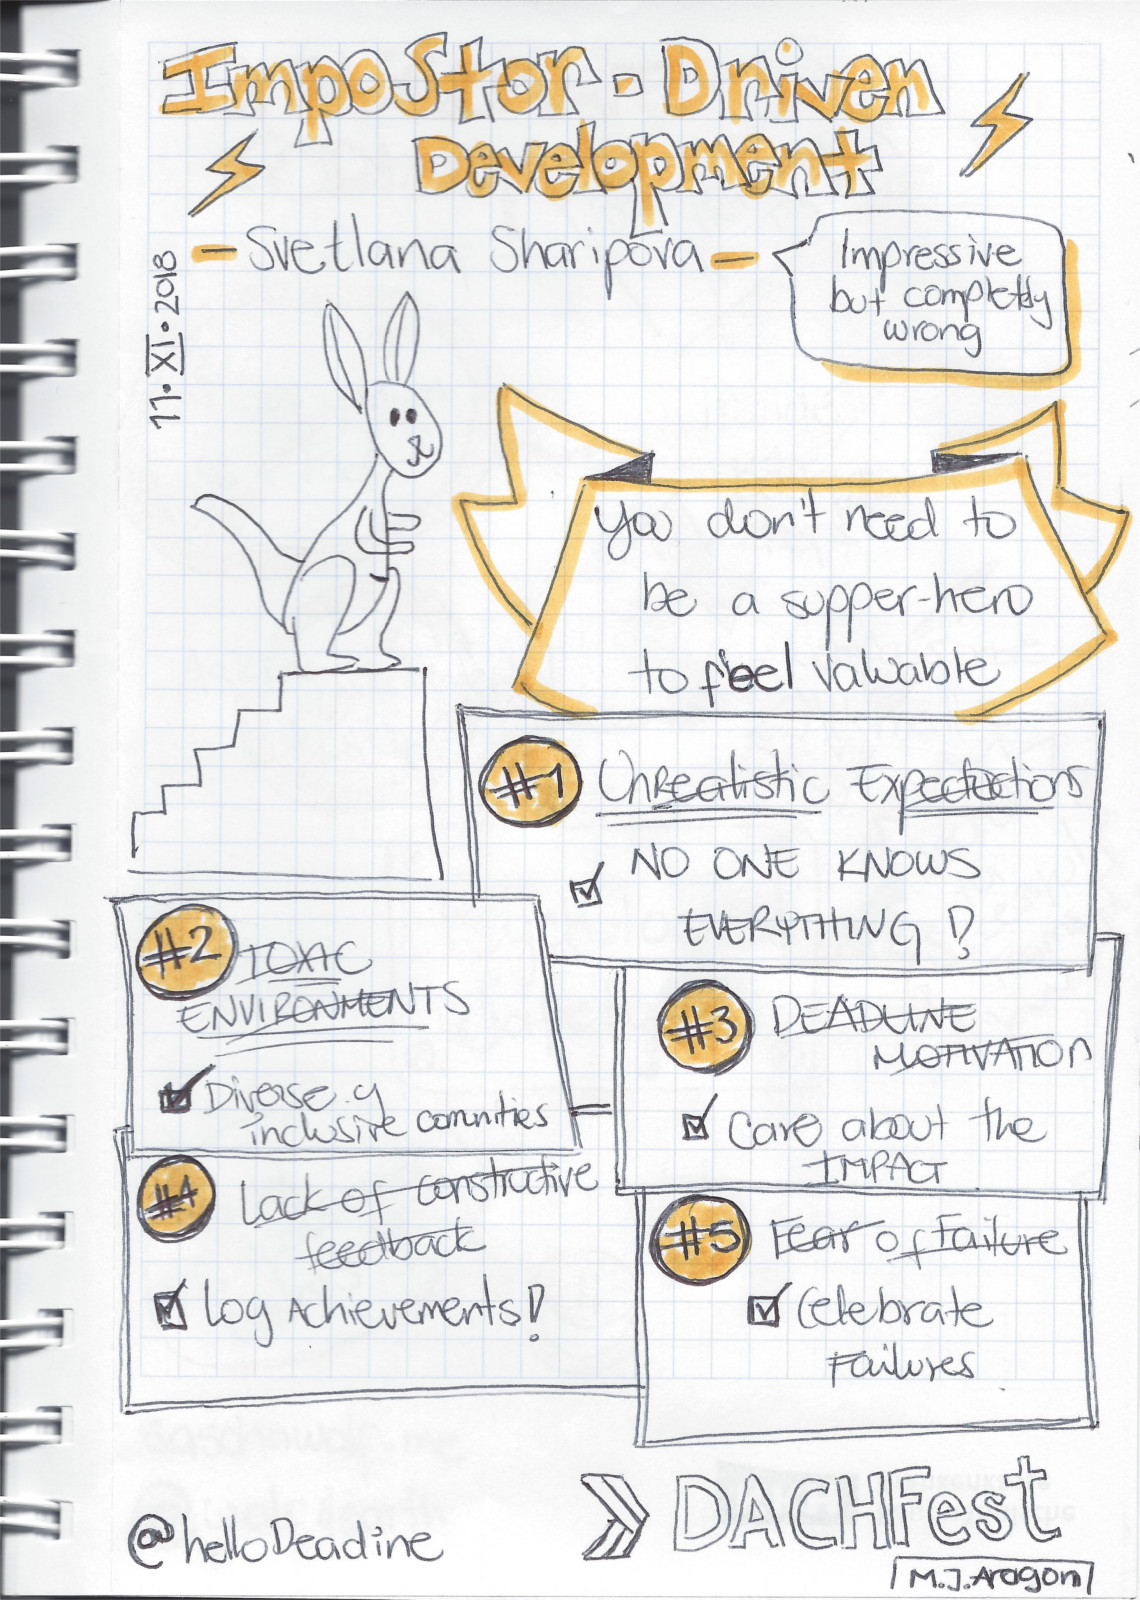 Impostor-Driven
Development
- Svetlana Sharipova -
Impressive
but completly
wrong
11·XI·2018
you don't need to
be a supper-hero
to feel valuable
#1 Unrealistic Expectactions
NO ONE KNOWS
EVERYTHING!
#2 TOXIC
ENVIRONMENTS
Diverse y
inclusive communities
#3 DEADLINE
MOTIVATION
Care about the
IMPACT
#4 Lack of constructive
feedback
Log Achievements!
#5 Fear of Failure
Celebrate
Failures
DACHFest
@helloDeadine
M.J.Aragon